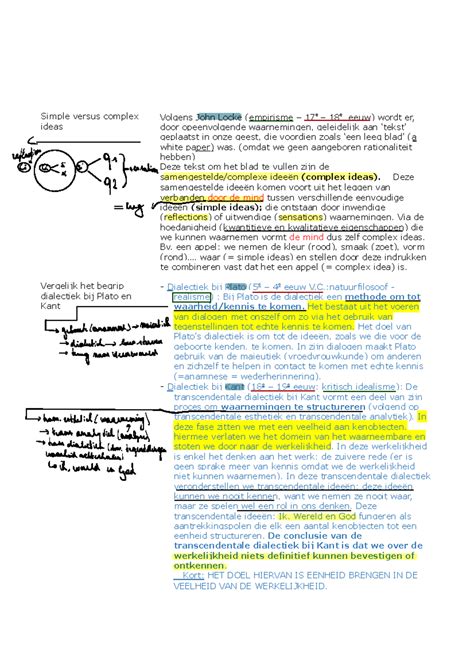 Simple versus complex
ideas
Volgens John Locke (empirisme – 17e – 18e eeuw) wordt er,
door opeenvolgende waarnemingen, geleidelijk aan 'tekst'
geplaatst in onze geest, die voordien zoals 'een leeg blad' (a
white paper) was. (omdat we geen aangeboren rationaliteit
hebben)
Deze tekst om het blad te vullen zijn de
samengestelde/complexe ideeën (complex ideas). Deze
samengestelde ideeën komen voort uit het leggen van
verbanden door de mind tussen verschillende eenvoudige
ideeën (simple ideas); die ontstaan door inwendige
(reflections) of uitwendige (sensations) waarnemingen. Via de
hoedanigheid (kwantitieve en kwalitatieve eigenschappen) die
we kunnen waarnemen vormt de mind dus zelf complex ideas.
Bv. een appel: we nemen de kleur (rood), smaak (zoet), vorm
(rond)…. waar (= simple ideas) en stellen door deze indrukken
te combineren vast dat het een appel (= complex idea) is.
Vergelijk het begrip
dialectiek bij Plato en
Kant
- Dialectiek bij Plato (5e – 4e eeuw V.C.:natuurfilosoof -
realisme) : Bij Plato is de dialectiek een methode om tot
waarheid/kennis te komen. Het bestaat uit het voeren
van dialogen met onszelf om zo via het gebruik van
tegenstellingen tot echte kennis te komen. Het doel van
Plato's dialectiek is om tot de ideeën, zoals we die voor de
geboorte kenden, te komen. In zijn dialogen maakt Plato
gebruik van de maieutiek (vroedvrouwkunde) om anderen
en zichzelf te helpen in contact te komen met echte kennis
(=anamnese = wederherinnering).
- Dialectiek bij Kant (18e – 19e eeuw: kritisch idealisme): De
transcendentale dialectiek bij Kant vormt een deel van zijn
proces om waarnemingen te structureren (volgend op
transcendentale esthetiek en transcendentale analytiek). In
deze fase zitten we met een veelheid aan kenobjecten,
hiermee verlaten we het domein van het waarneembare en
stoten we door naar de werkelijkheid. In deze dialectiek
is enkel het denken aan het werk: de zuivere rede (er is
geen sprake meer van kennis omdat we de werkelijkheid
niet kunnen waarnemen). In deze transcendentale dialektiek
veronderstellen we transcendentale ideeën: deze ideeën
kunnen we nooit kennen, want we nemen ze nooit waar,
maar ze spelen wel een rol in ons denken. Deze
transcendentale ideeën: Ik, Wereld en God fungeren als
aantrekkingspolen die elk een aantal kenobjecten tot een
eenheid structureren. De conclusie van de
transcendentale dialectiek bij Kant is dat we over de
werkelijkheid niets definitief kunnen bevestigen of
ontkennen.
Kort: HET DOEL HIERVAN IS EENHEID BRENGEN IN DE
VEELHEID VAN DE WERKELIJKHEID.